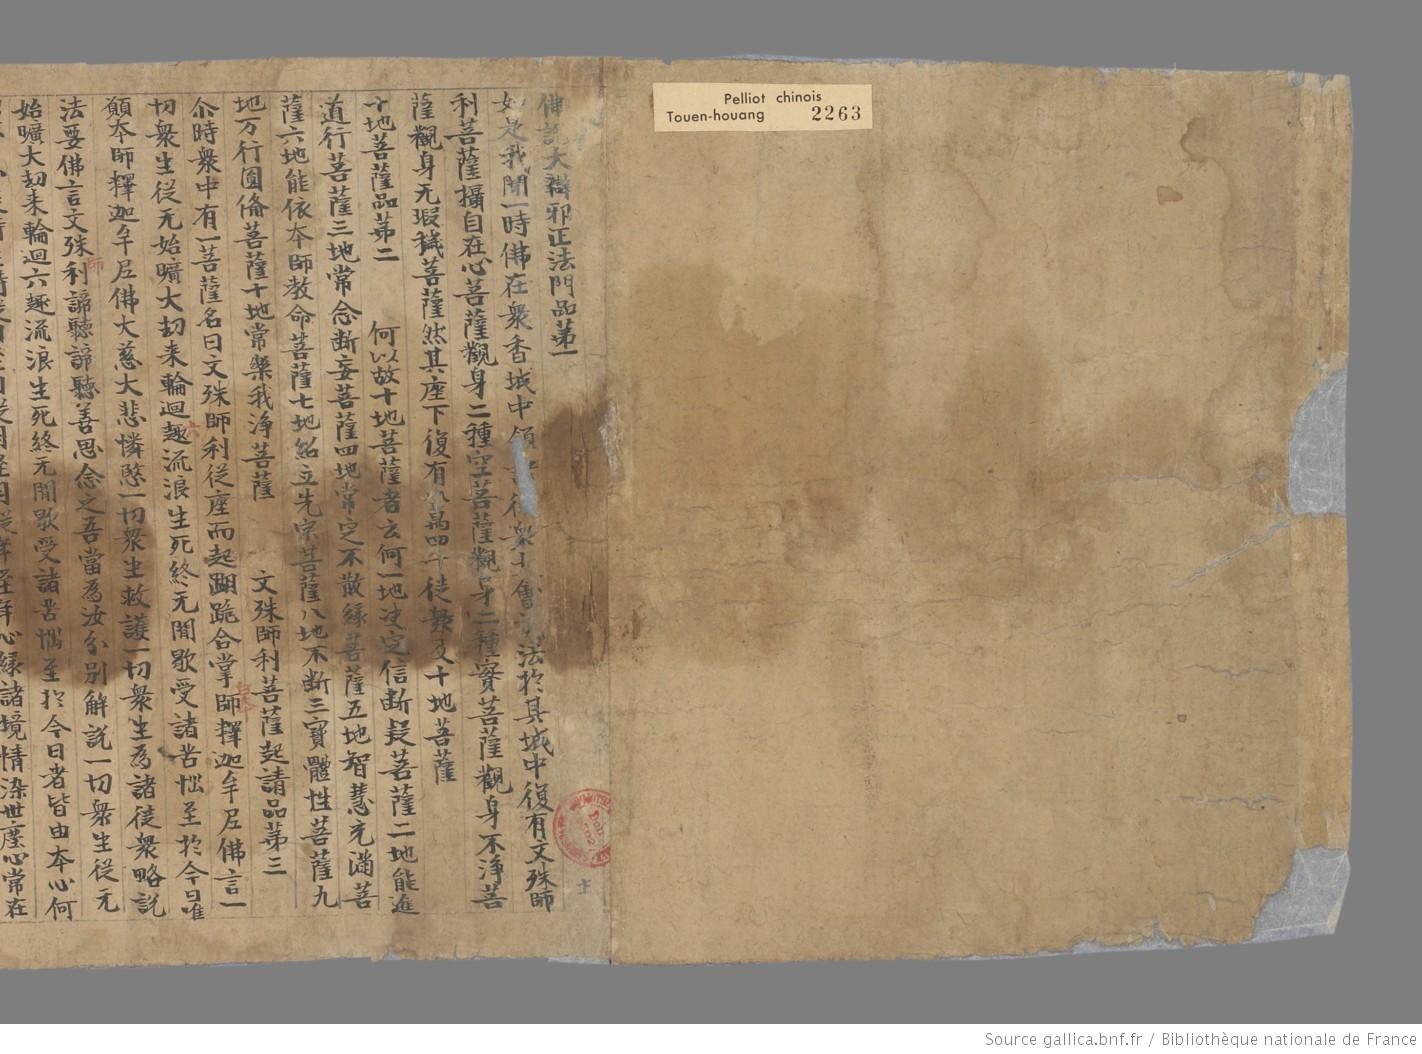 佛説大辯邪正法門品苐一
如是我聞一時佛在衆香城中 徒衆 會 法於其城中復有文殊師
利菩薩攝自在心菩薩觀身二種空菩薩觀身二種實菩薩觀身不淨菩
薩觀身无瑕穢菩薩然其座下復有八萬四千徒衆及十地菩薩
十地菩薩品苐二 何以故十地菩薩者云何一地决定信断疑菩薩二地能進
道行菩薩三地常念断妄菩薩四地常定不散緣菩薩五地智慧充滿菩
薩六地能依本師教命菩薩七地紹立先宗菩薩八地不断三寳體性菩薩九
地万行圓俻菩薩十地常樂我淨菩薩 文殊師利菩薩起請品苐三
尒時衆中有一菩薩名曰文殊師利從座而起踟跪合掌師釋迦牟尼佛言一
切衆生從无始曠大劫来輪迴趣流浪生死終无閒歇受諸苦惱至於今日唯
願本師釋迦牟尼佛大慈大悲憐愍一切衆生救護一切衆生為諸徒衆略説
法要佛言文殊利諦聽諦聽善思念之吾當為汝分别解説一切衆生從无
師
始曠大劫来輪迴六趣流浪生死終无閒歇受諸苦惱至於今日者皆由本心何
心緣諸境情染世塵心常在
Pelliot chinois
Touen-houang 2263
Source gallica.bnf.fr / Bibliothèque nationale de France